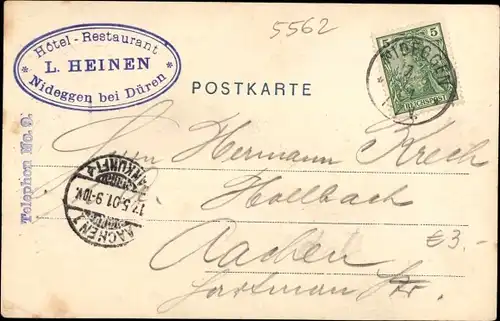 5562
Hôtel-Restaurant
* L. HEINEN *
Nideggen bei Düren
Telephon No. 9.
POSTKARTE
5 5
REICHSPOST
NIDEGGEN
Herrn Hermann Krech
Hollbach
Aachen
£3.-
AACHEN 1
17.5.01.9-10V.
ANKUNFT